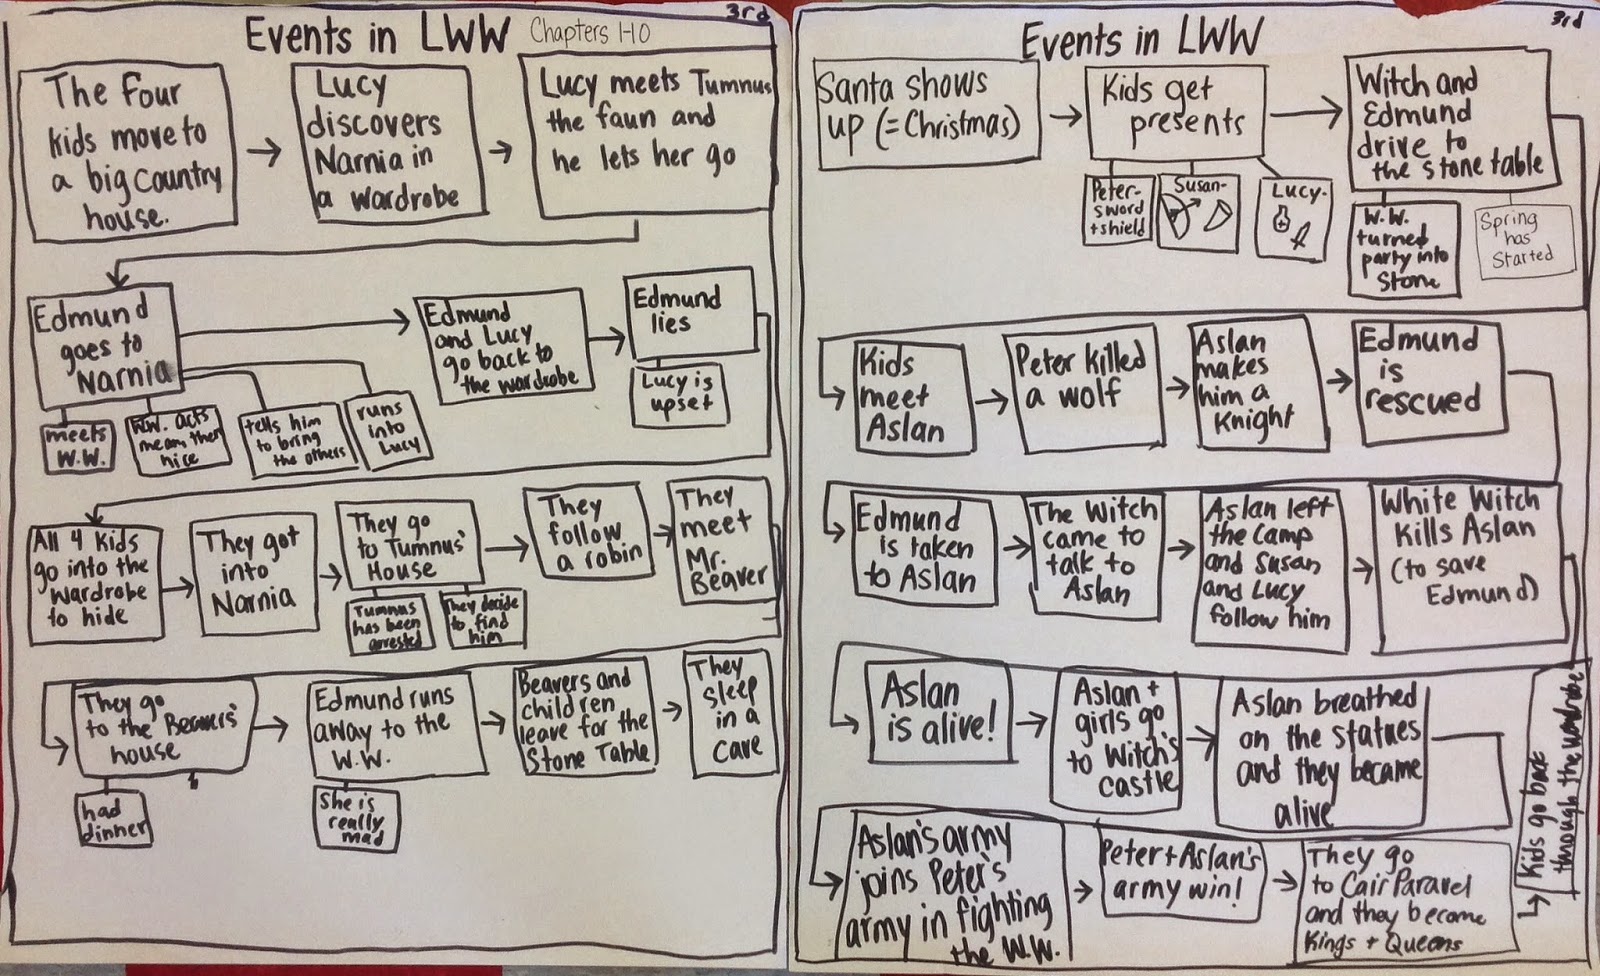 3rd
Events in LWW Chapters 1-10
The four
kids move to
a big country
house.
Lucy
discovers
Narnia in
a wardrobe
Lucy meets Tumnus
the faun and
he lets her go
Edmund
goes to
Narnia
meets
W.W.
W.W. acts
mean, then
nice
tells him
to bring
the others
runs
into
Lucy
Edmund
and Lucy
go back to
the wardrobe
Edmund
lies
Lucy is
upset
All 4 kids
go into the
wardrobe
to hide
They got
into
Narnia
They go
to Tumnus'
House
Tumnus
has been
arrested
They decide
to find
him
They
follow
a robin
They
meet
Mr.
Beaver
They go
to the Beavers'
house
had
dinner
Edmund runs
away to the
W.W.
She is
really
mad
Beavers and
children
leave for the
Stone Table
They
sleep
in a
cave
3rd
Events in LWW
Santa shows
up (=Christmas)
Kids get
presents
Peter-
sword
+shield
Susan-
Lucy-
Witch and
Edmund
drive to
the stone table
W.W.
turned
party into
Stone
Spring
has
Started
Kids
meet
Aslan
Peter killed
a wolf
Aslan
makes
him a
Knight
Edmund
is
rescued
Edmund
is taken
to Aslan
The Witch
came to
talk to
Aslan
Aslan left
the Camp
and Susan
and Lucy
follow him
White Witch
kills Aslan
(to save
Edmund)
Aslan
is alive!
Aslan +
girls go
to Witch's
castle
Aslan breathed
on the statues
and they became
alive
Aslan's army
joins Peter's
army in fighting
the W.W.
Peter+Aslan's
army win!
They go
to Cair Paravel
and they become
Kings + Queens
Kids go back
through the wardrobe